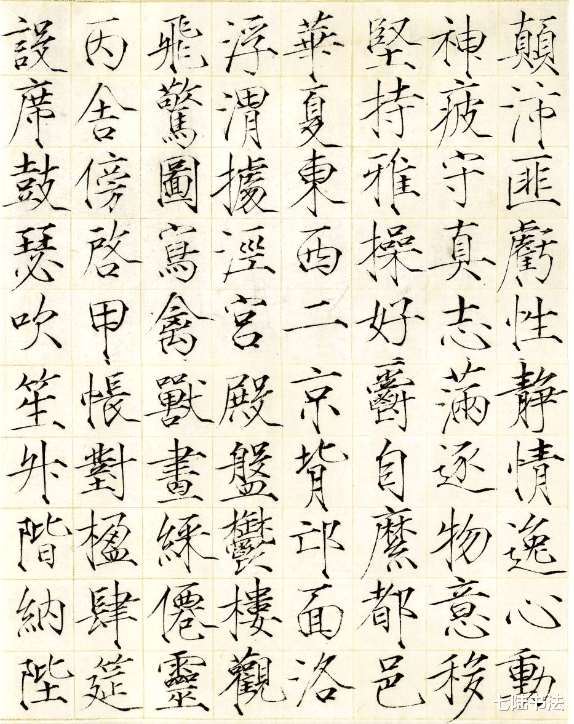 顛沛匪虧性靜情逸心動
神疲守真志滿逐物意移
堅持雅操好爵自縻都邑
華夏東西二京背邙面洛
浮渭據涇宮殿盤鬱樓觀
飛驚圖寫禽獸畫綵僊靈
丙舍傍啓甲帳對楹肆筵
設席鼓瑟吹笙升階納陛
七陆书法